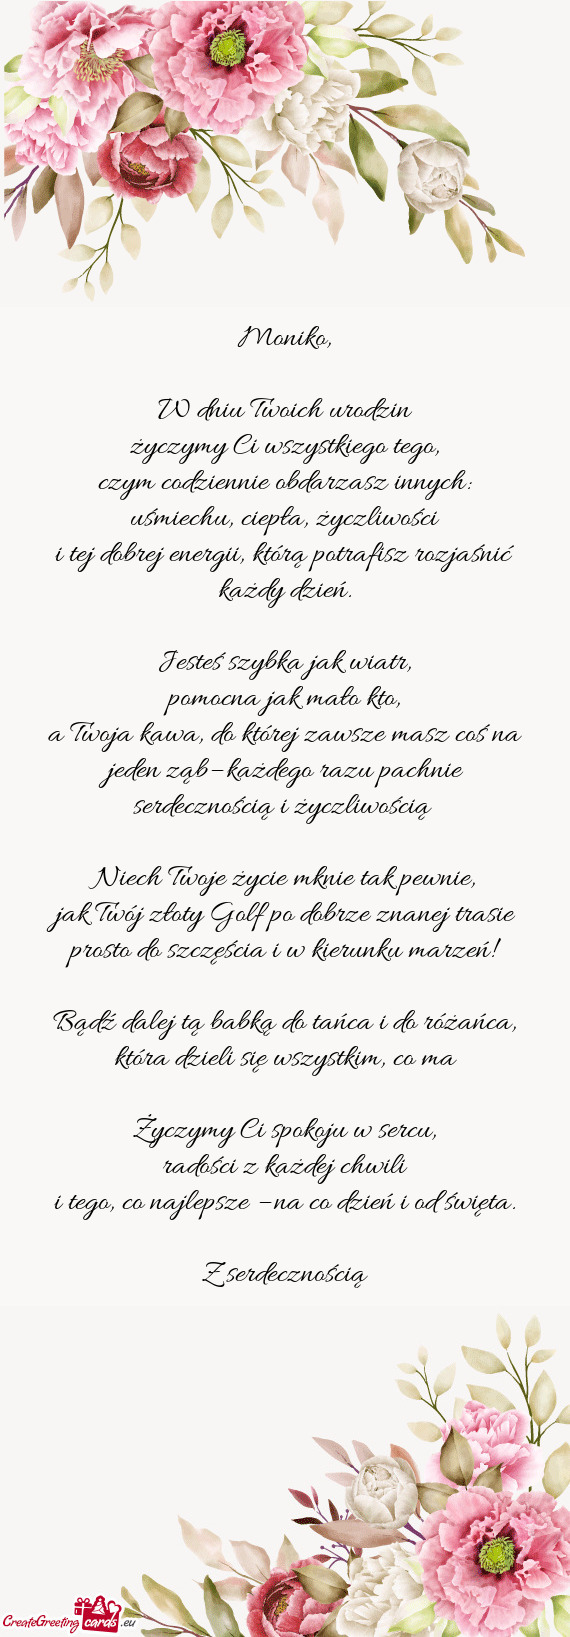 Moniko,
W dniu Twoich urodzin
życzymy Ci wszystkiego tego,
czym codziennie obdarzasz innych:
uśmiechu, ciepła, życzliwości
i tej dobrej energii, którą potrafisz rozjaśnić
każdy dzień.
Jesteś szybka jak wiatr,
pomocna jak mało kto,
a Twoja kawa, do której zawsze masz coś na
jeden ząb–każdego razu pachnie
serdecznością i życzliwością
Niech Twoje życie mknie tak pewnie,
jak Twój złoty Golf po dobrze znanej trasie
prosto do szczęścia i w kierunku marzeń!
Bądź dalej tą babką do tańca i do różańca,
która dzieli się wszystkim, co ma
Życzymy Ci spokoju w sercu,
radości z każdej chwili
i tego, co najlepsze –na co dzień i od święta.
Z serdecznością
CreateGreeting cards .eu